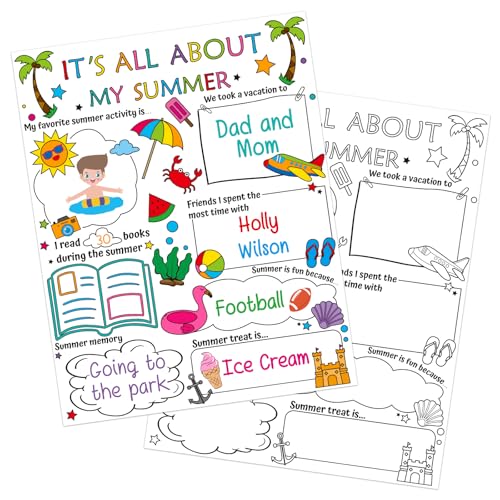 IT'S ALL ABOUT
MY SUMMER
My favorite summer activity is...
We took a vacation to
Dad and
Mom
Friends I spent the
most time with
Holly
Wilson
I read 30 books
during the summer
Summer is fun because
Football
Summer memory
Going to
the park
Summer treat is...
Ice Cream
ALL ABOUT
SUMMER
We took a vacation to
nds I spent the
time with
Summer is fun because
Summer treat is...